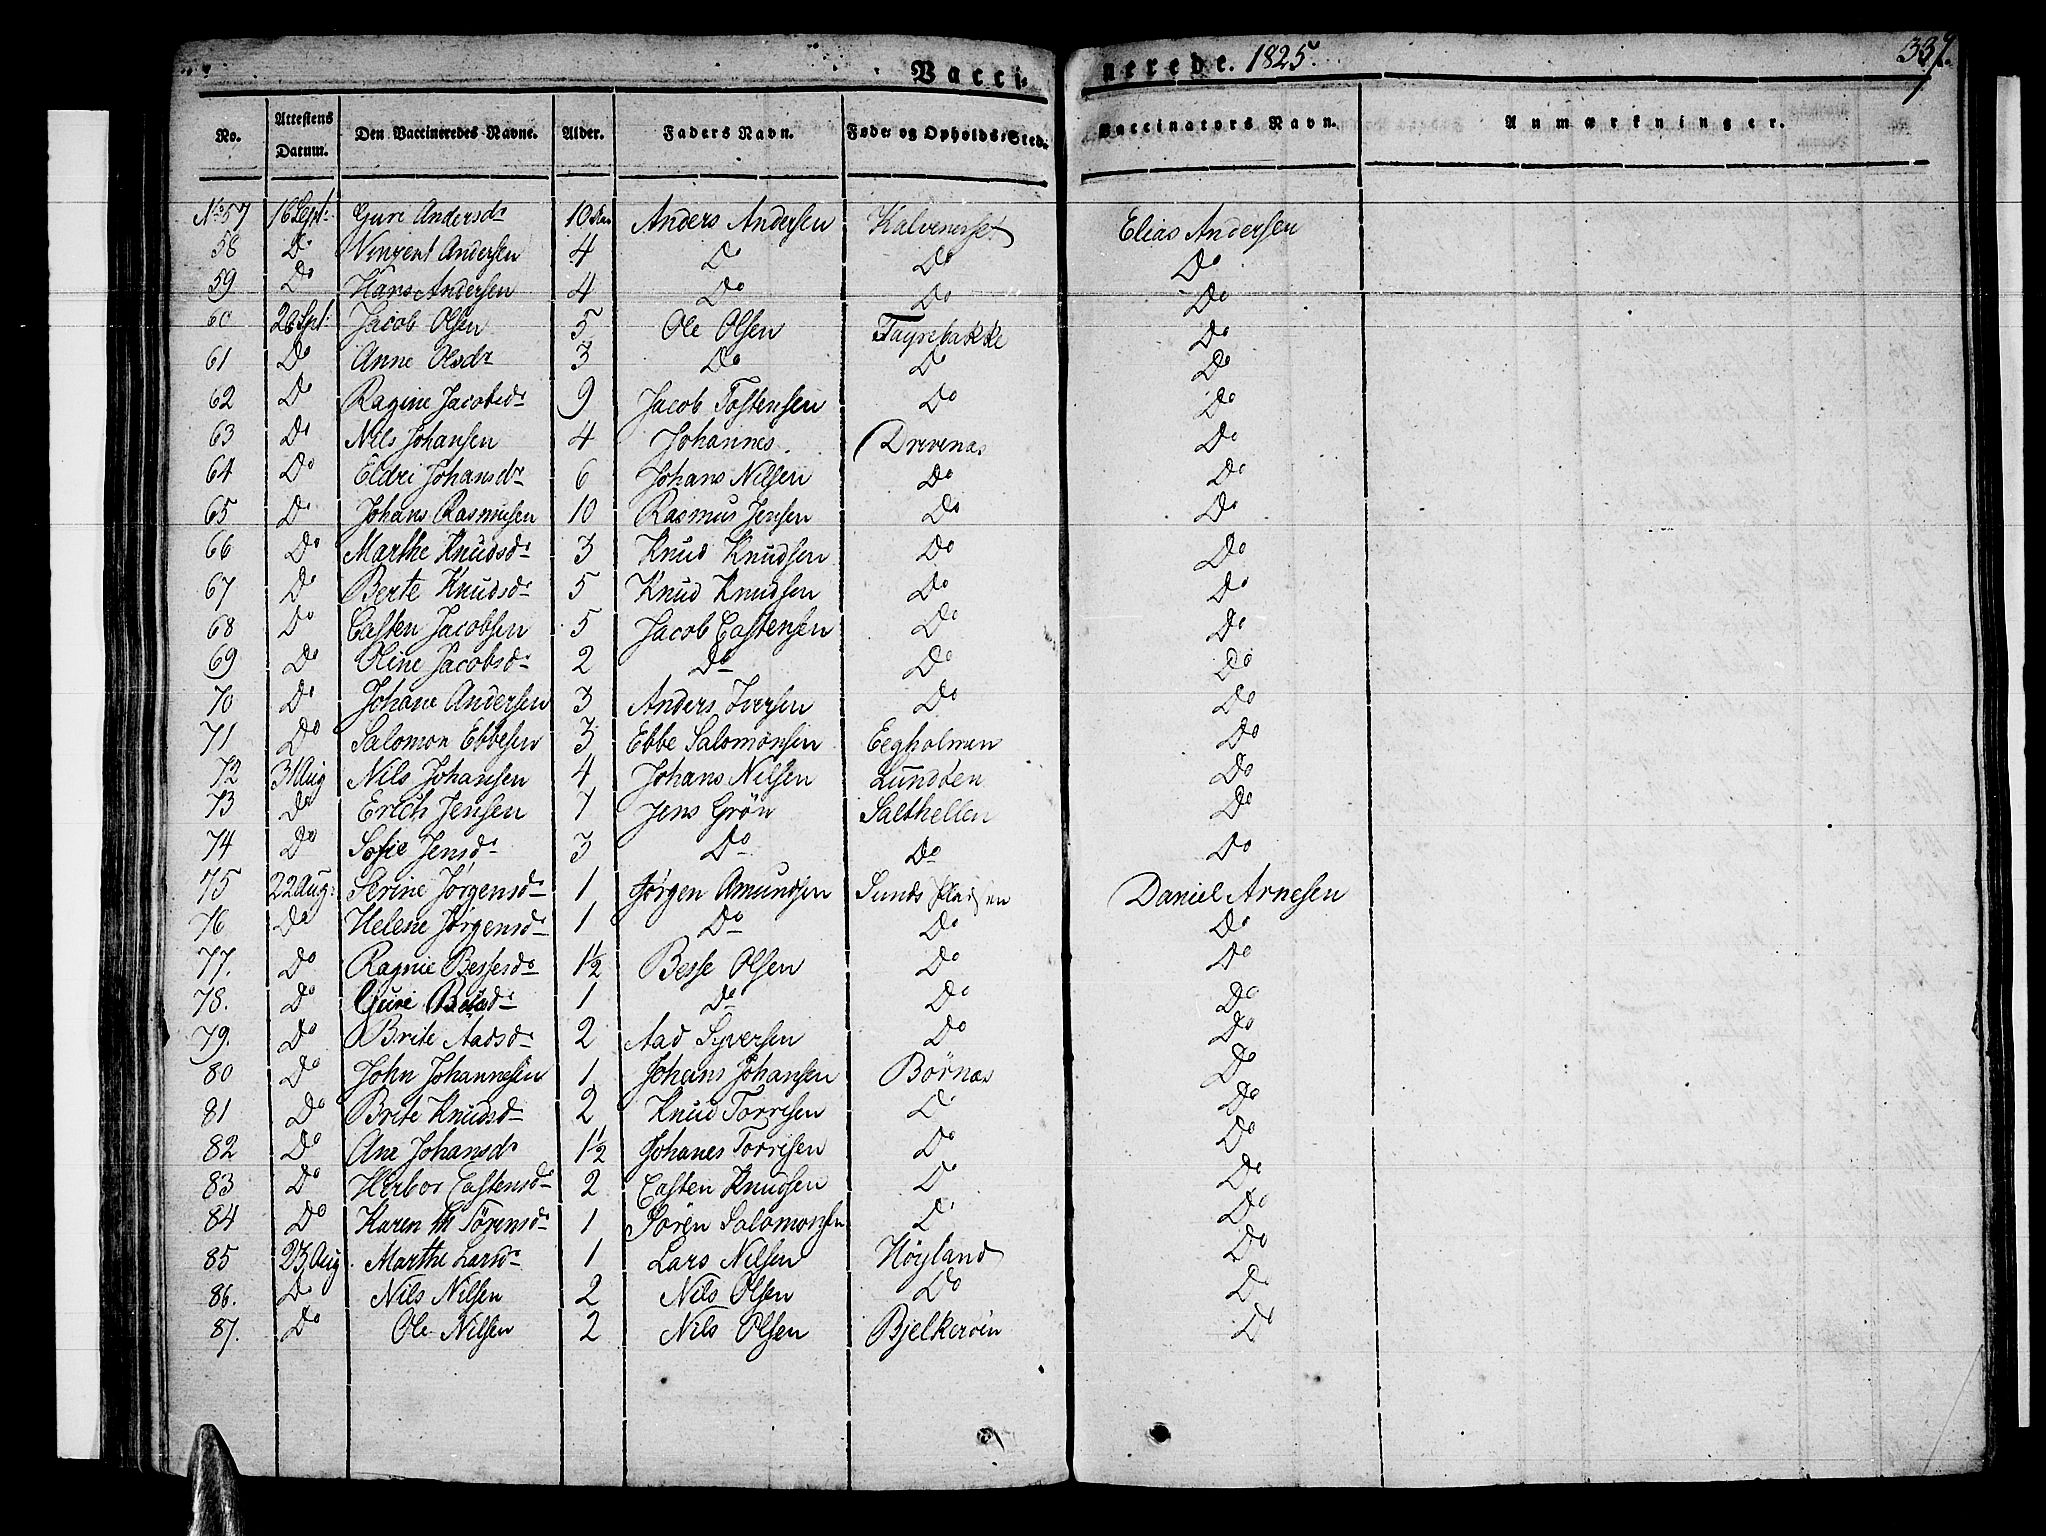 Vaccinerede. 1825. 337.
No. Attestens Datum. Den Vaccineredes Navne. Alder. Faders Navn. Føde- og Opholds-Sted. Vaccinators Navn. Anmærkninger.
No 57 16 Sept: Guri Andersdr 10 Anders Andersen Elias Andersen
58 Do Vinzent Andersen 4 Do Do Do
59 Do Hans Andersen 4 Do Do Do
60 26 Spt: Jacob Olsen 5 Ole Olsen Fagrebakke Do
61 Do Anne Olsdr 3 Do Do Do
62 Do Ragine Jacobsdr 9 Jacob Tostensen Do Do
63 Do Nils Johansen 4 Johannes Drevenæs Do
64 Do Eldri Johansdr 6 Johans Nilsen Do Do
65 Do Johans Rasmusen 10 Rasmus Jensen Do Do
66 Do Marthe Knudsdr 3 Knud Knudsen Do Do
67 Do Berte Knudsdr 5 Knud Knudsen Do Do
68 Do Casten Jacobsen 5 Jacob Castensen Do Do
69 Do Oline Jacobsdr 2 Do Do Do
70 Do Johane Andersen 3 Anders Iversen Do Do
71 Do Salomon Ebbesen 3 Ebbe Salomonsen Eegholmen Do
72 31 Aug Nils Johansen 4 Johans Nilsen Lundten Do
73 Do Erich Jensen 7 Jens Grön Salthellen Do
74 Do Sofie Jensdr 3 Do Do Do
75 22 Aug: Serine Jørgensdr 1 Jørgen Amundsen Sunds pladsen Daniel Arnesen
76 Do Helene Jørgensdr 1 Do Do Do
77. Do Ragnie Bessesdr 1½ Besse Olsen Do Do
78. Do Guri Besdr 1 Do Do Do
79. Do Brite Aadsdr 2 Aad Syversen Do Do
80 Do John Johannesen 1 Johans Johansen Børnæs Do
81 Do Brite Knudsdr 2 Knud Torrisen Do Do
82 Do Ane Johansdr 1½ Johanes Torrisen Do Do
83 Do Herbor Castensdr 2 Casten Knudsen Do Do
84 Do Karen M Sörensdr 1 Sören Salomonsen Do Do
85 23 Aug. Marthe Larsdr 1 Lars Nilsen Höyland Do
86. Do Nils Nilsen 2 Nils Olsen Do Do
87. Do Ole Nilsen 2 Nils Olsen Bjelkeröen Do